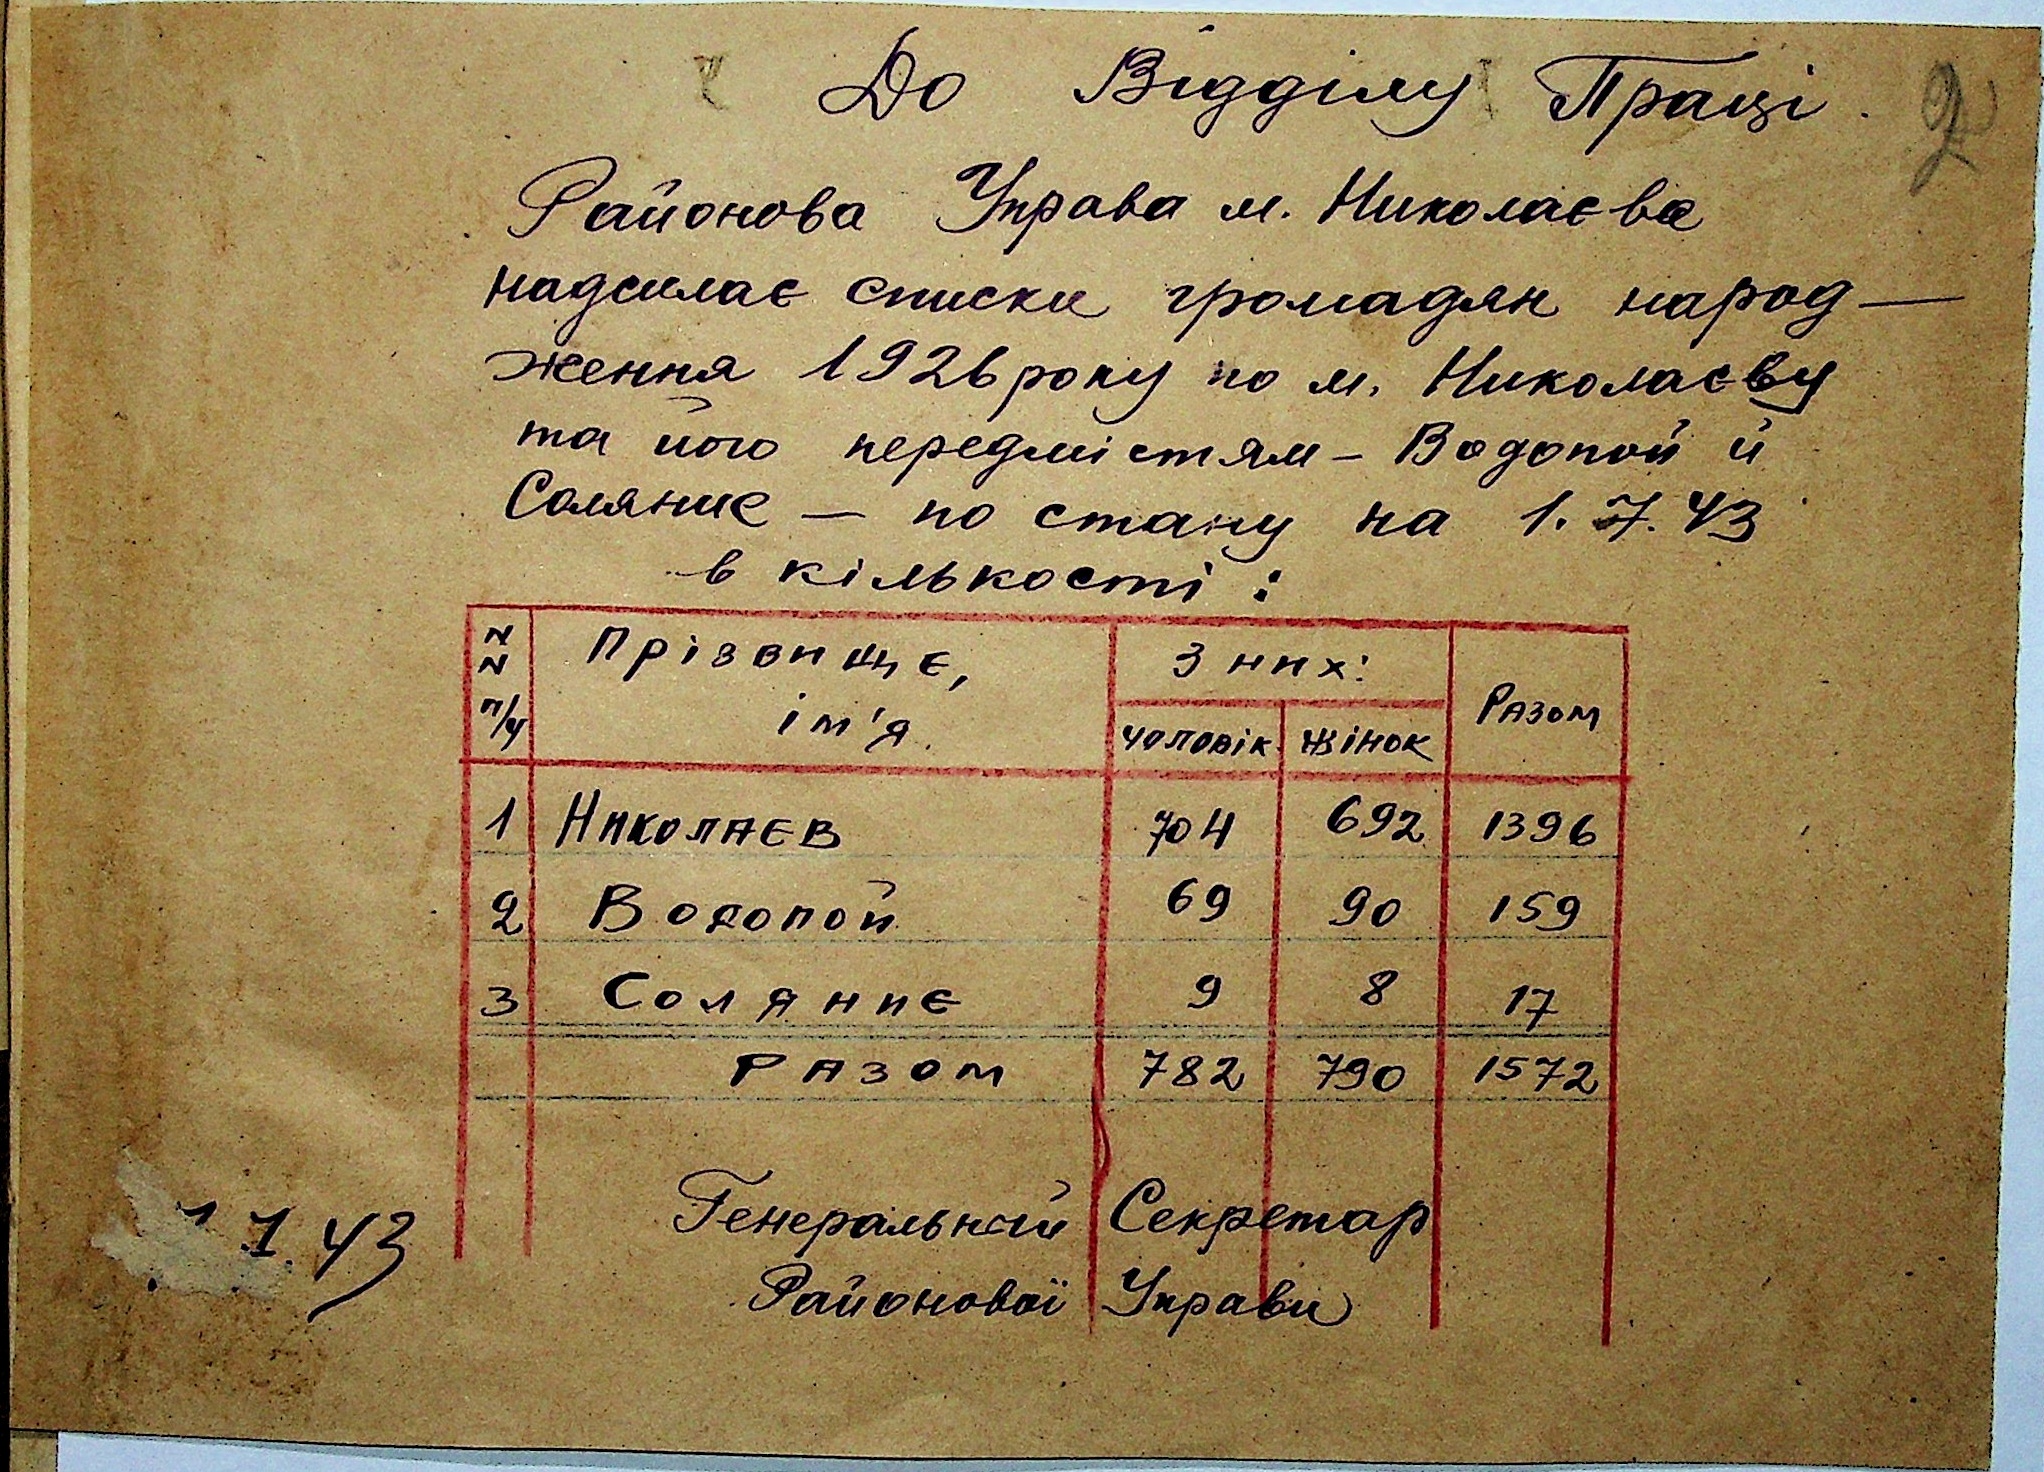 До Відділу Праці.
2
Районова Управа м. Николаєва
надсилає списки громадян народ—
ження 1926 року по м. Николаєву
та його передмістям – Водопой й
Соляние — по стану на 1.7.43
в кількості:
N N п/ч Прізвище, ім'я. З них: Разом
чоловік жінок
1 Николаєв 704 692 1396
2 Водопой 69 90 159
3 Солянис 9 8 17
Разом 782 790 1572
Генеральний Секретар
1.43
Районової Управи